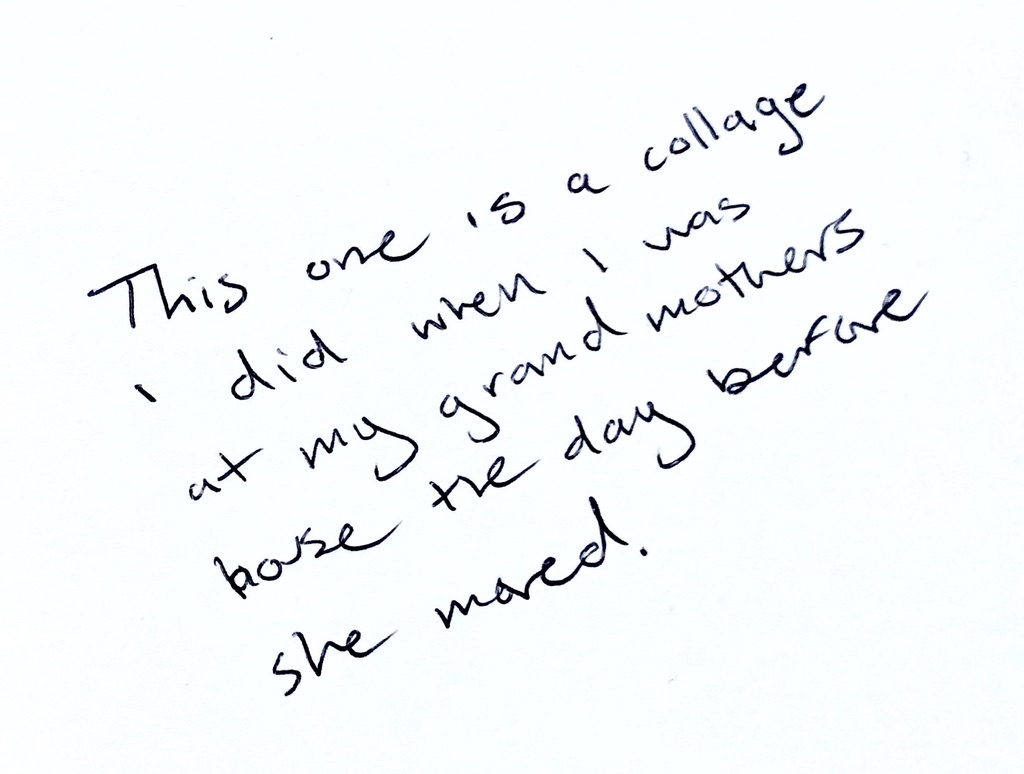 This one is a collage
i did when i was
at my grandmothers
house the day before
she moved.